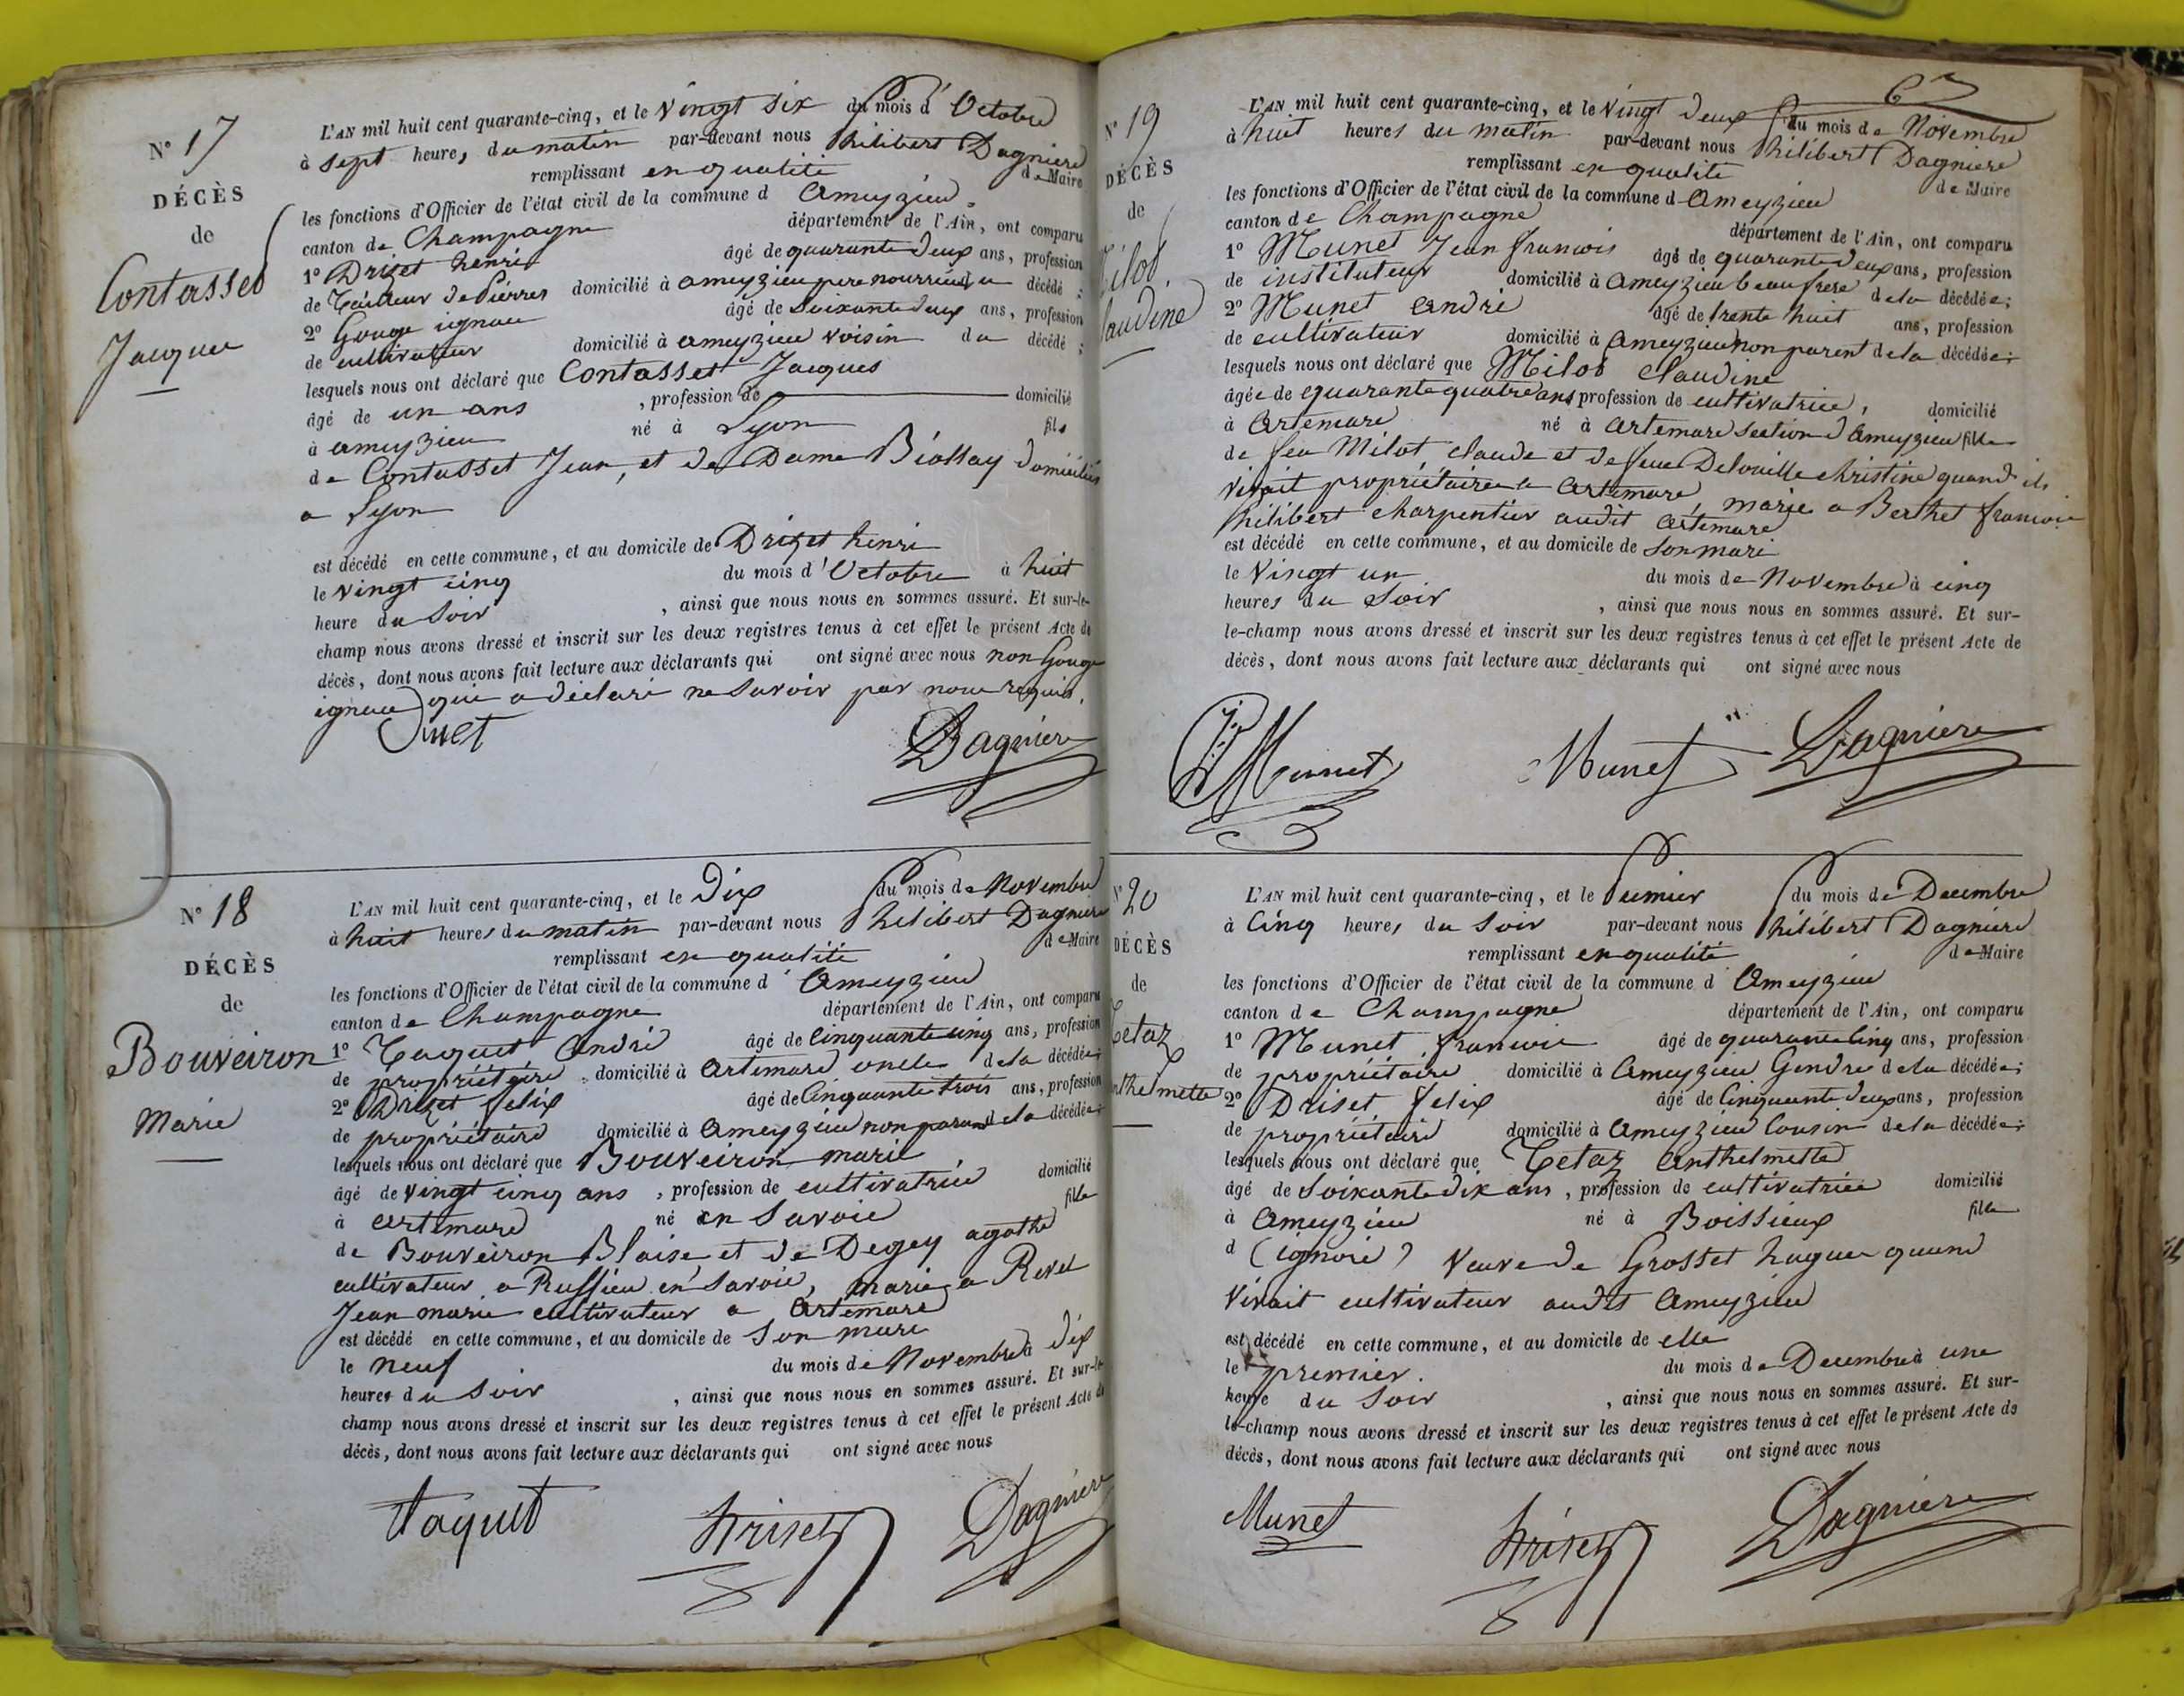 N° 17
DÉCÈS
de
Contasset
Jacques
L'AN mil huit cent quarante-cinq, et le Vingt six du mois d'Octobre
à sept heures du matin par-devant nous Philibert Dagniere
remplissant en qualité de Maire
les fonctions d'Officier de l'état civil de la commune d Ameyzieu
canton de Champagne département de l'Ain, ont comparu
1° Drizet henri âgé de quarante deux ans, profession
de tailleur de Pierres domicilié à ameyzieu pere nourricier du décédé ;
2° Gouge ignace âgé de Soixante deux ans, profession
de cultivateur domicilié à ameyzieu voisin du décédé ;
lesquels nous ont déclaré que Contasset Jacques
âgé de un ans , profession de domicilié
à ameyzieu né à Lyon fils
de Contasset Jean, et de Dame Biollay domiciliés
a Lyon
est décédé en cette commune, et au domicile de Drizet henri
le Vingt cinq du mois d'Octobre à huit
heure du Soir , ainsi que nous nous en sommes assuré. Et sur-le-
champ nous avons dressé et inscrit sur les deux registres tenus à cet effet le présent Acte de
décès, dont nous avons fait lecture aux déclarants qui ont signé avec nous non Gouge
ignace qui a déclaré ne Savoir par nous requis.
Dagniere
N° 18
DÉCÈS
de
Bouveiron
Marie
L'AN mil huit cent quarante-cinq, et le Dix du mois de Novembre
à huit heures du matin par-devant nous Philibert Dagniere
remplissant en qualité de Maire
les fonctions d'Officier de l'état civil de la commune d' Ameyzieu
canton de Champagne département de l'Ain, ont comparu
1° Taquet André âgé de Cinquante cinq ans, profession
de propriétaire domicilié à Artemare oncle de la décédée ;
2° Drizet felix âgé de Cinquante trois ans, profession
de propriétaire domicilié à Ameyzieu non parent de la décédée ;
lesquels nous ont déclaré que Bouveiron marie
âgé de vingt cinq ans , profession de cultivatrice domicilié
à Artemare né en Savoie fille
de Bouveiron Blaise et de Degey agathe
cultivateur a Ruffieu en Savoie, marie a Revel
Jean marie cultivateur a Artemare
est décédé en cette commune, et au domicile de Son mari
le neuf du mois de Novembre à dix
heures du Soir , ainsi que nous nous en sommes assuré. Et sur-le-
champ nous avons dressé et inscrit sur les deux registres tenus à cet effet le présent Acte de
décès, dont nous avons fait lecture aux déclarants qui ont signé avec nous
Taquet Driset Dagniere
N° 19
DÉCÈS
de
Milot
Claudine
L'AN mil huit cent quarante-cinq, et le Vingt deux du mois de Novembre
à huit heures du matin par-devant nous Philibert Dagniere
remplissant en qualité de Maire
les fonctions d'Officier de l'état civil de la commune d Ameyzieu
canton de Champagne département de l'Ain, ont comparu
1° Munet Jean francois âgé de quarante deux ans, profession
de instituteur domicilié à Ameyzieu beau frere de la décédée ;
2° Munet Andre âgé de trente huit ans, profession
de cultivateur domicilié à Ameyzieu non parent de la décédée ;
lesquels nous ont déclaré que Milot Claudine
âgée de quarante quatre ans profession de cultivatrice, domicilié
à Artemare né à Artemare Section d'Ameyzieu fille
de feu Milot Claude et de feue Delouille christine quand ils
vivait propriétaire a Artemare, marie a Berthet francois
Philibert charpentier audit Artemare
est décédé en cette commune, et au domicile de Son mari
le Vingt un du mois de Novembre à cinq
heures du Soir , ainsi que nous nous en sommes assuré. Et sur-
le-champ nous avons dressé et inscrit sur les deux registres tenus à cet effet le présent Acte de
décès, dont nous avons fait lecture aux déclarants qui ont signé avec nous
Munet Munet Dagniere
N° 20
DÉCÈS
de
Tetaz
Anthelmette
L'AN mil huit cent quarante-cinq, et le Premier du mois de Decembre
à Cinq heures du Soir par-devant nous Philibert Dagniere
remplissant en qualité de Maire
les fonctions d'Officier de l'état civil de la commune d Ameyzieu
canton de Champagne département de l'Ain, ont comparu
1° Munet francois âgé de quarante Cinq ans, profession
de propriétaire domicilié à Ameyzieu Gendre de la décédée ;
2° Driset felix âgé de Cinquante deux ans, profession
de propriétaire domicilié à Ameyzieu Cousin de la décédée ;
lesquels nous ont déclaré que Tetaz Anthelmette
âgé de Soixante dix ans , profession de cultivatrice domicilié
à Ameyzieu né à Boissieux fille
d (ignoré) Veuve de Grosset hugues quand
Vivait cultivateur audit Ameyzieu
est décédé en cette commune, et au domicile de elle
le premier. du mois de Decembre à une
heure du Soir , ainsi que nous nous en sommes assuré. Et sur-
le-champ nous avons dressé et inscrit sur les deux registres tenus à cet effet le présent Acte de
décès, dont nous avons fait lecture aux déclarants qui ont signé avec nous
Munet Driset Dagniere